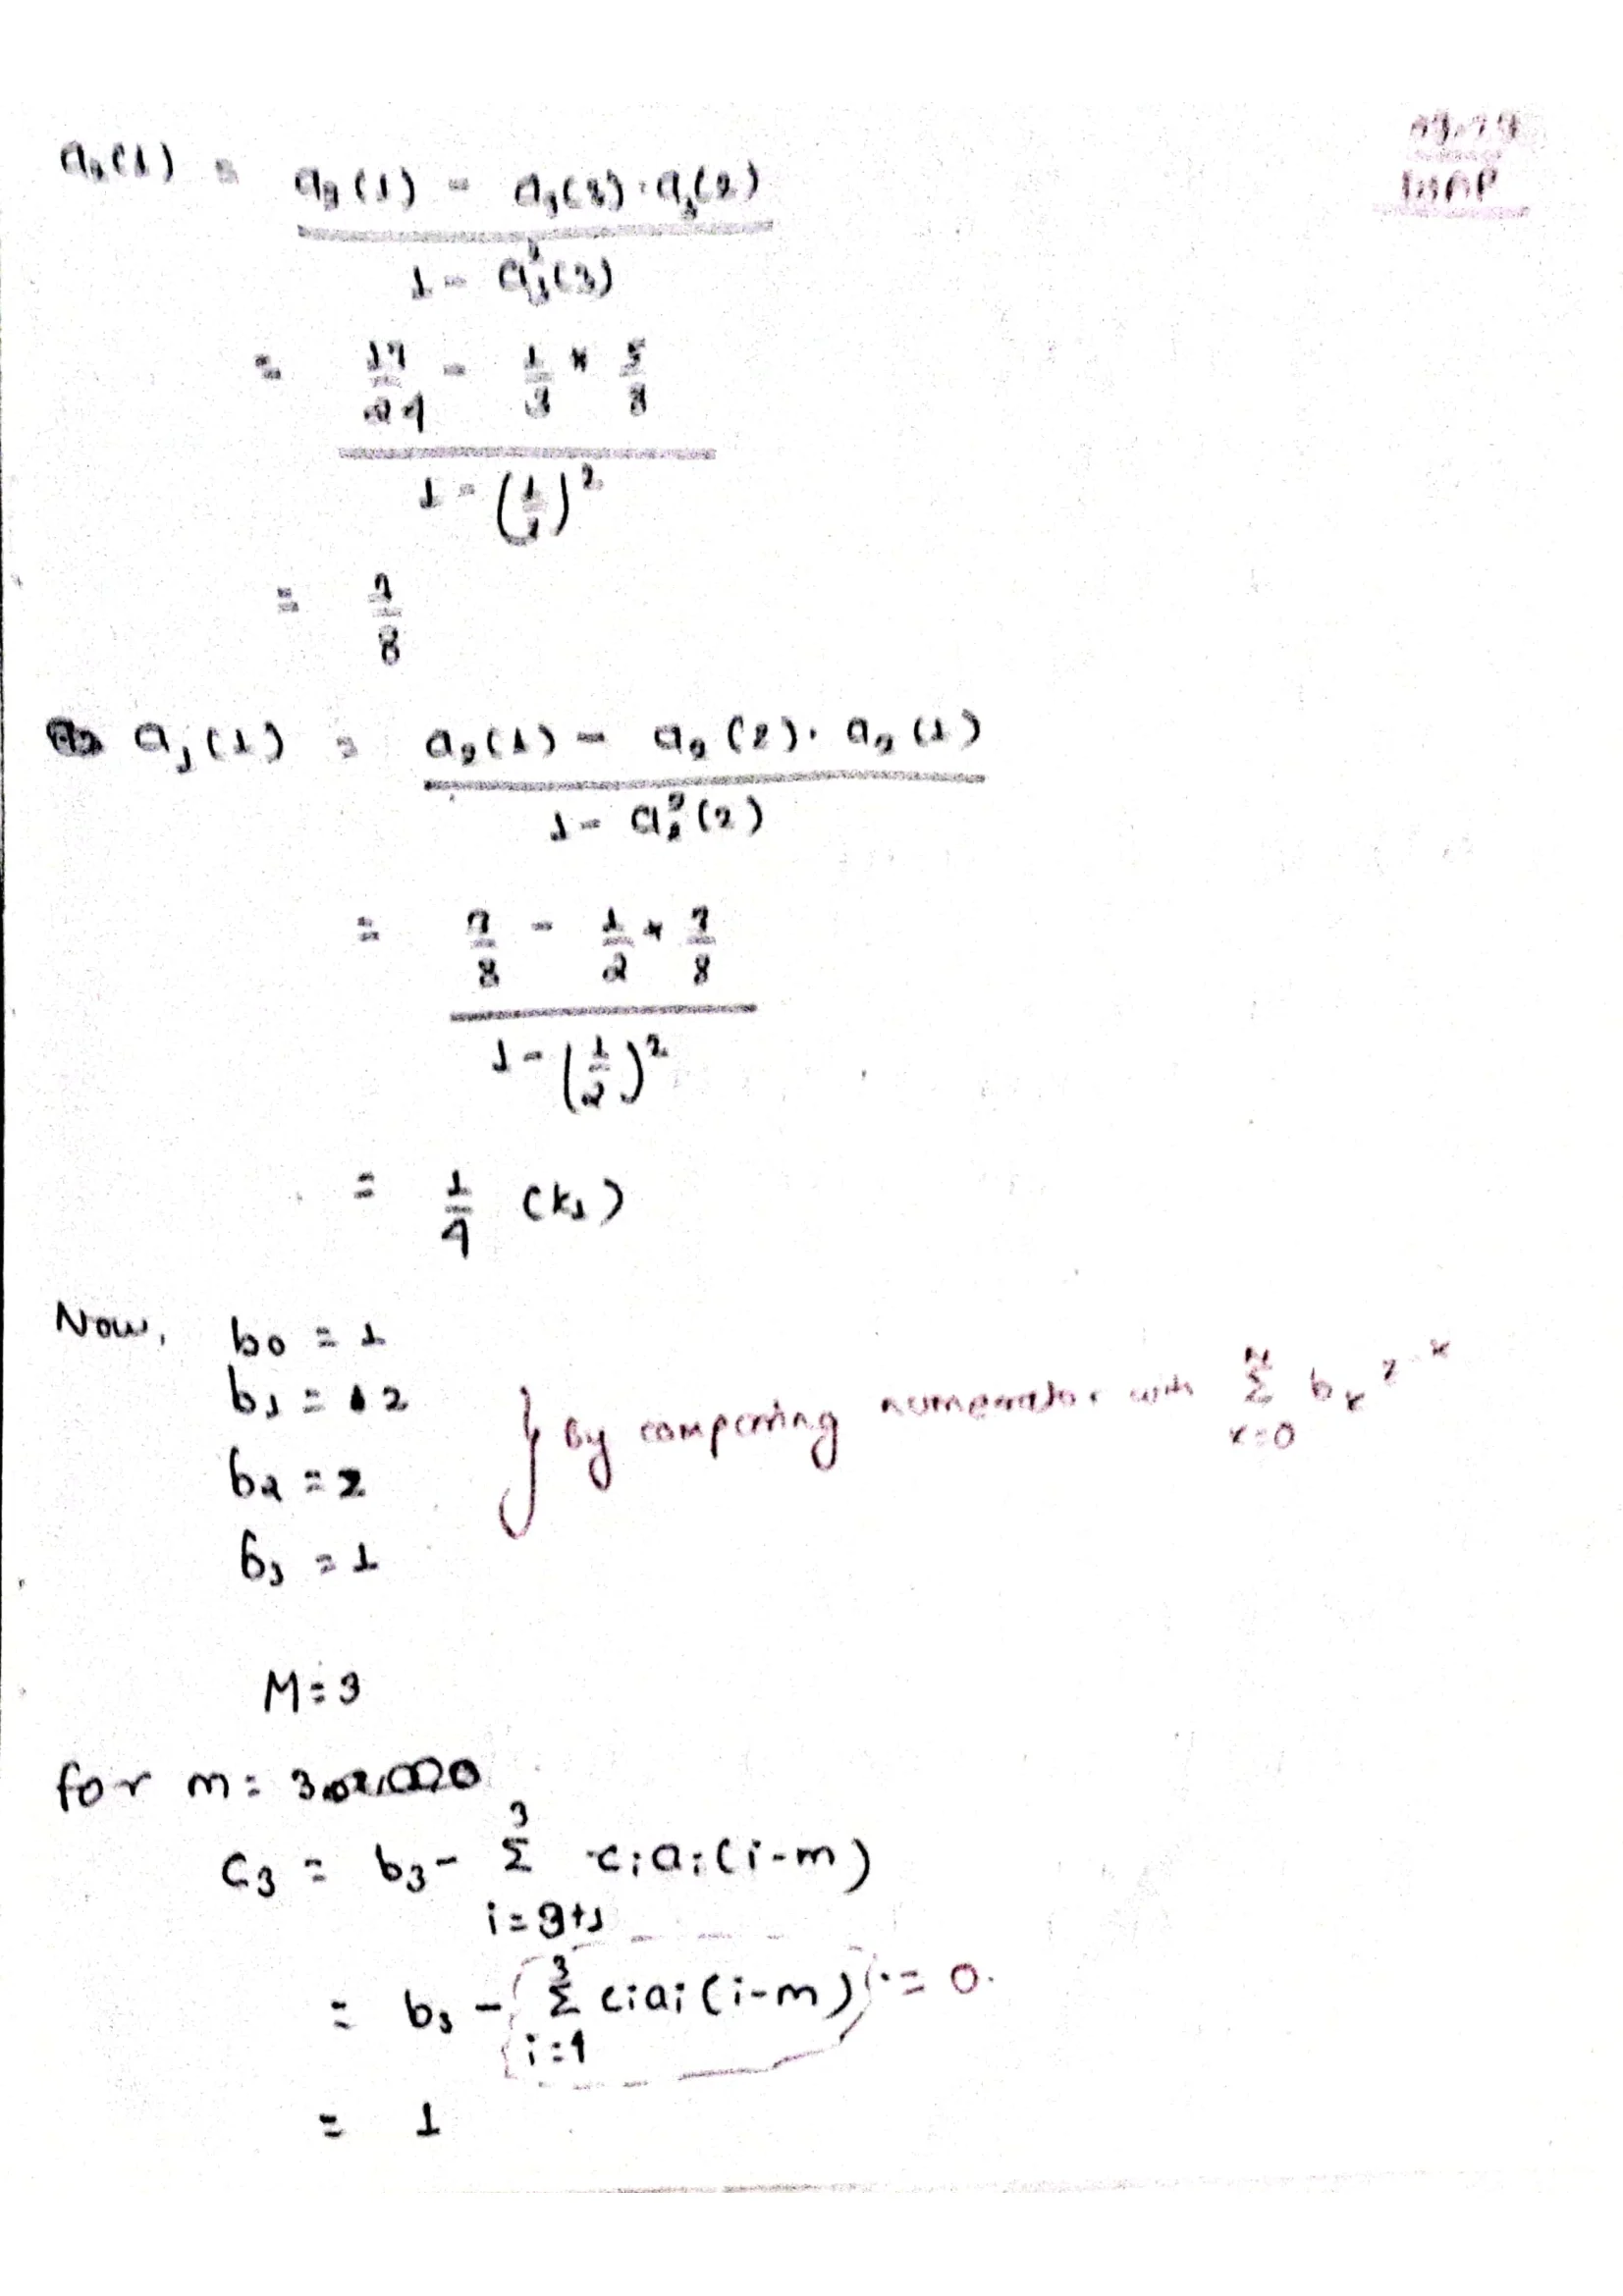 a₂(1) = a₃(1) - a₃(3)·a₃(2)
1 - a₃²(3)
= 17/24 - 1/3 * 5/8
1 - (1/3)²
= 7/8
a₁(1) = a₂(1) - a₂(2)·a₂(1)
1 - a₂²(2)
= 7/8 - 1/2 * 7/8
1 - (1/2)²
= 1/4 (k₁)
Now, b₀ = 1
b₁ = 2
b₂ = 2
b₃ = 1
} By comparing numerator with Σ bₖ z⁻ᵏ
k=0
M=3
for m = 3
3
C₃ = b₃ - Σ cᵢaᵢ(i-m)
i=3+1
3
= b₃ - Σ cᵢaᵢ(i-m) = 0.
i=4
= 1